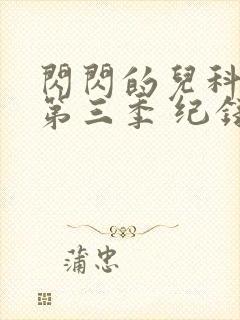 閃閃的兒科
第三季 纪
蒲忠